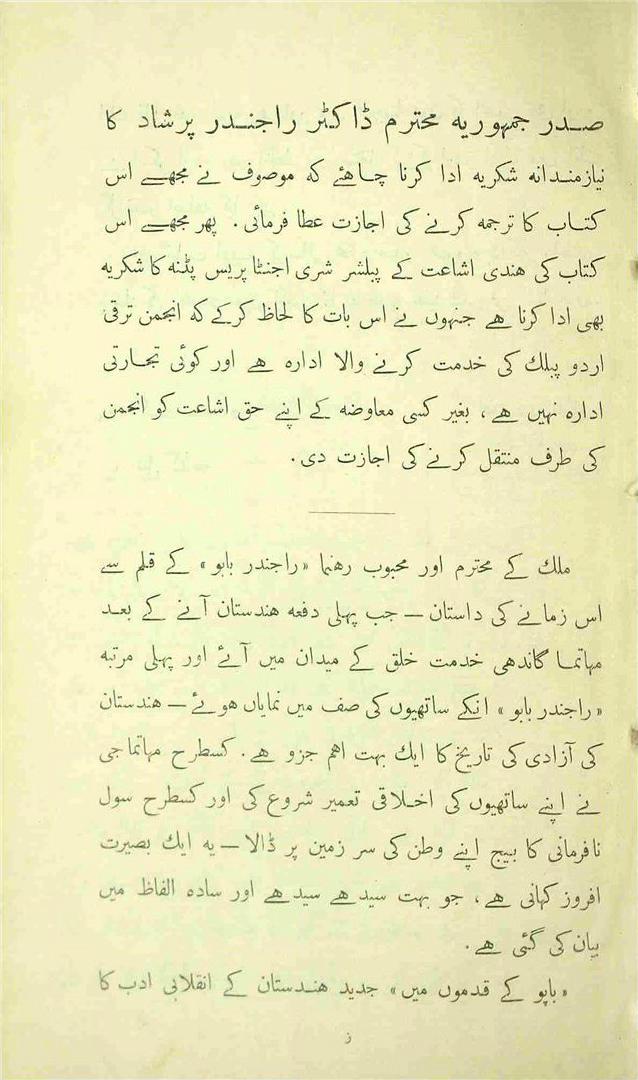 صدر جمہوریہ محترم ڈاکٹر راجندر پرشاد کا
نیازمندانہ شکریہ ادا کرنا چاہئے کہ موصوف نے مجھے اس
کتاب کا ترجمہ کرنے کی اجازت عطا فرمائی۔ پھر مجھے اس
کتاب کی ہندی اشاعت کے پبلشر شری اجنٹا پریس پٹنہ کا شکریہ
بھی ادا کرنا ہے جنہوں نے اس بات کا لحاظ کرکے کہ انجمن ترقی
اردو پبلک کی خدمت کرنے والا ادارہ ہے اور کوئی تجارتی
ادارہ نہیں ہے، بغیر کسی معاوضہ کے اپنے حق اشاعت کو انجمن
کی طرف منتقل کرنے کی اجازت دی۔
ملک کے محترم اور محبوب رہنما «راجندر بابو» کے قلم سے
اس زمانے کی داستان — جب پہلی دفعہ ہندستان آنے کے بعد
مہاتما گاندھی خدمت خلق کے میدان میں آئے اور پہلی مرتبہ
«راجندر بابو» انکے ساتھیوں کی صف میں نمایاں ہوئے — ہندستان
کی آزادی کی تاریخ کا ایک بہت اہم جزو ہے۔ کسطرح مہاتماجی
نے اپنے ساتھیوں کی اخلاقی تعمیر شروع کی اور کسطرح سول
نافرمانی کا بیج اپنے وطن کی سر زمین پر ڈالا — یہ ایک بصیرت
افروز کہانی ہے، جو بہت سیدھے سیدھے اور سادہ الفاظ میں
بیان کی گئی ہے۔
«باپو کے قدموں میں» جدید ہندستان کے انقلابی ادب کا
ز